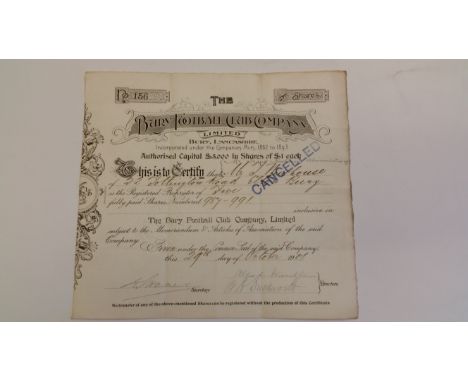 No 156
5 Shares
THE
BURY FOOTBALL CLUB COMPANY
LIMITED
BURY, LANCASHIRE.
Incorporated under the Companies Acts, 1862 to 1893
Authorised Capital £3,000 in Shares of £1 each
CANCELLED
This is to Certify that
of Road Bury
is the Registered Proprietor of Five
fully paid Shares Numbered 987-991
inclusive in
The Bury Football Club Company, Limited
subject to the Memorandum & Articles of Association of the said
Company.
Given under the Common Seal of the said Company
this 29th day of October
Secretary
Directors
No transfer of any of the above-mentioned Shares can be registered without the production of this Certificate